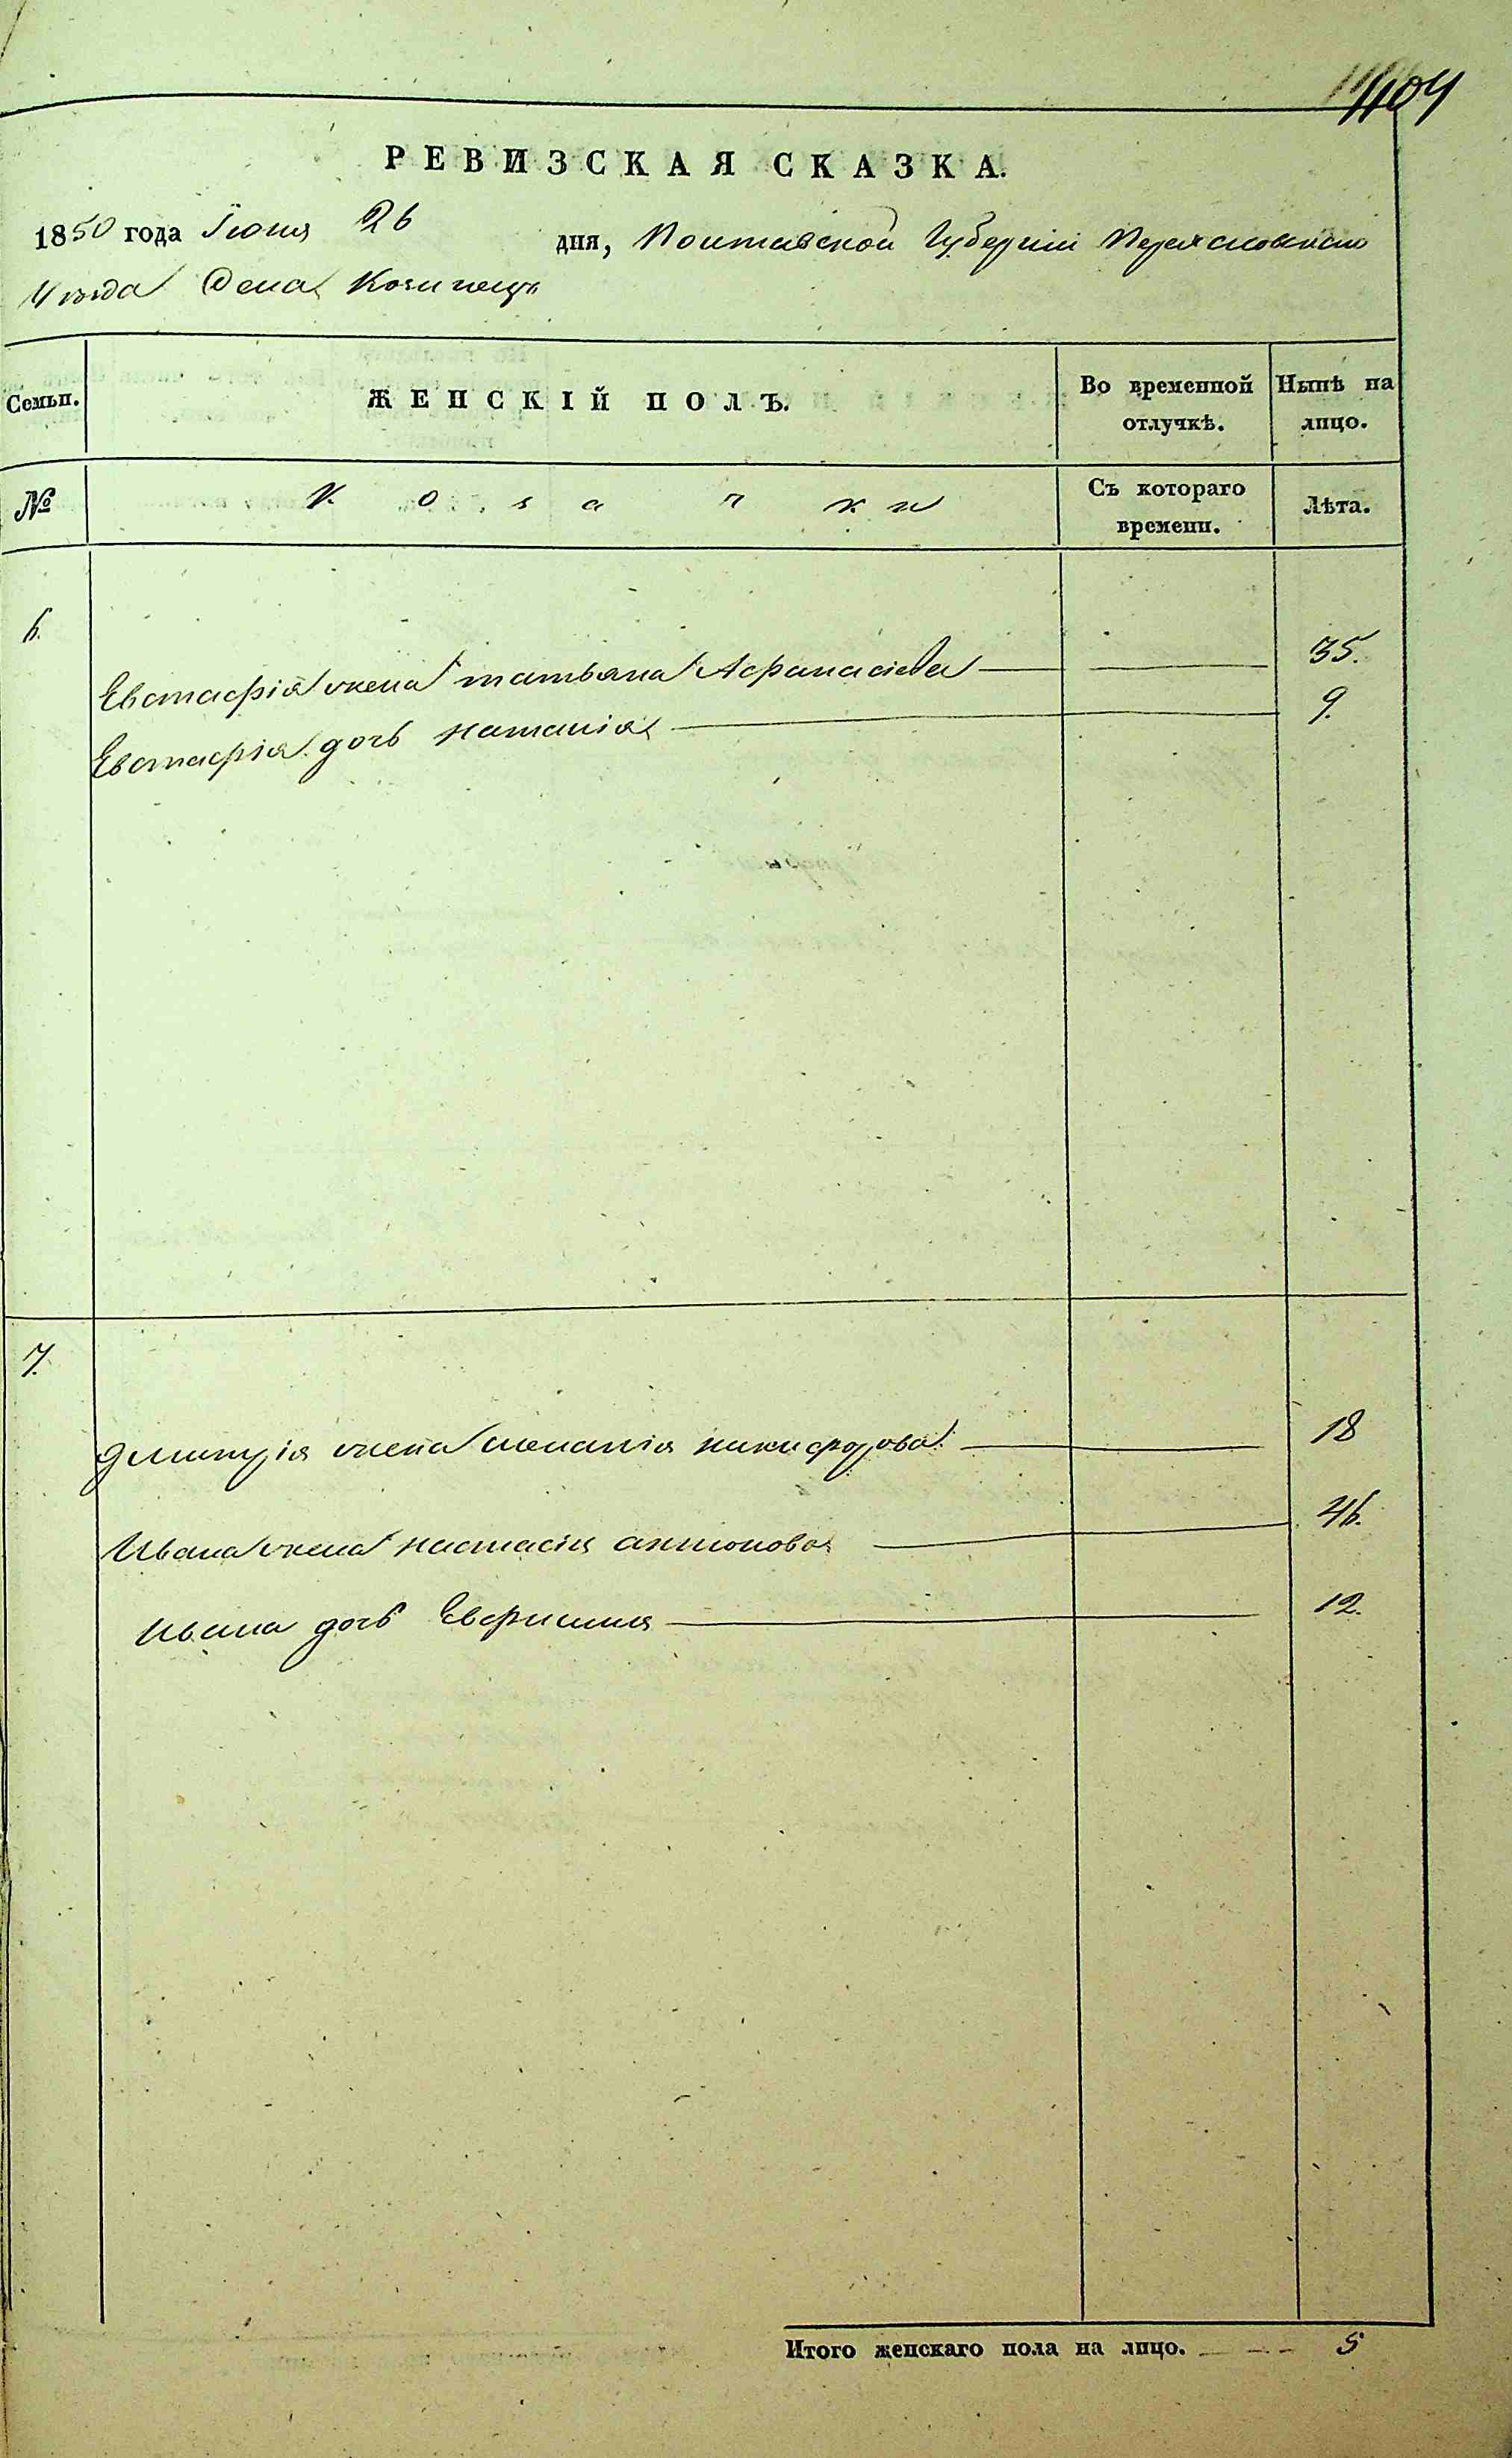 404
РЕВИЗСКАЯ СКАЗКА.
1850 года Іюня 26 дня, Полтавской Губерніи Переясловскаго
Уѣзда Села Козинець
Семьи. ЖЕНСКІЙ ПОЛЪ. Во временной отлучкѣ. Нынѣ на лицо.
№ Козачки Съ котораго времени. Лѣта.
6.
Евстафія жена татьяна Афанасіева 35.
Евстафія дочь наталія 9.
7.
дмитрія жена меланія никифорова 18
Ивана жена настасія антонова 46.
Ивана дочь Евфимия 12.
Итого женскаго пола на лицо. 5